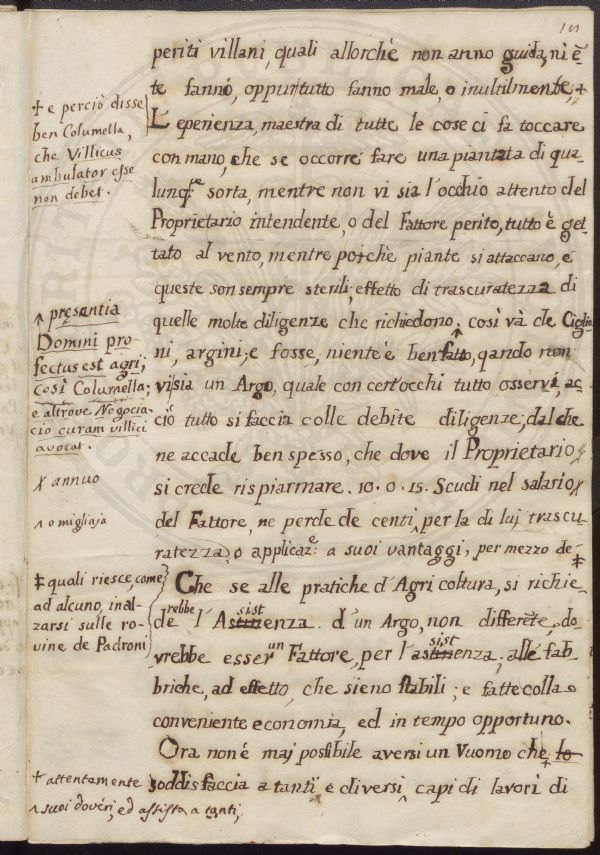 101
periti villani, quali allorchè non anno guida, niẽ
te fanno, oppur tutto fanno male, o inultilmente, +
L'eperienza, maestra di tutte le cose ci fa toccare
con mano, che se occorre fare una piantata di qua
lunq.ue sorta, mentre non vi sia l'occhio attento del
Proprietario intendente, o del Fattore perito, tutto è get
tato al vento, mentre poiche piante si attaccano, e
queste son sempre sterili; effetto di trascuratezza di
quelle molte diligenze che richiedono; così và de Ciglio
ni, argini, e fosse, niente è ben fatto, qando non
vi sia un Argo, quale con cert'occhi tutto osservi, ac
ciò tutto si faccia colle debite diligenze; dal che
ne accade ben spesso, che dove il Proprietario
si crede rispiarmare. 10. o. 15. Scudi nel salario X
del Fattore, ne perde de centi, per la di luj trascu
ratezza, o applicaz.e: a suoi vantaggi, per mezzo de ‡
Che se alle pratiche d'Agricoltura, si richie
derebbe l'Astinenza sist d'un Argo, non differẽte, do
vrebbe esser un Fattore, per l'astinenza sist alle fab
briche, ad effetto, che sieno stabili; e fatte colla
conveniente economia, ed in tempo opportuno.
Ora non è maj possibile aversi un Vuomo che lo
soddisfaccia a tanti, e diversi capi di lavori di
+ e perciò disse
ben Columella,
che Villicus
ambulator esse
non debet.
^ presentia
Domini pro-
fectus est agri;
così Columella;
e altrove Negocia-
cio curam villici
avocat.
X annuo
^ o migliaja
‡ quali riesce, come
ad alcuno, inal-
zarsi sulle ro-
vine de Padroni
+ attentamente
^ suoi doveri, ed assista a tanti,